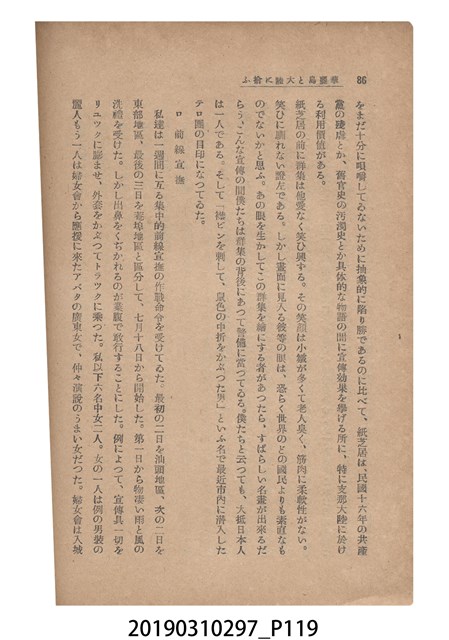 86
華麗島と大陸に拾ふ
をまだ十分に咀嚼してゐないために抽象的に陥り勝であるのに比べて、紙芝居は、民國十六年の共産
黨の陵虐とか、舊官吏の汚濁史とか具体的な物語の間に宣傳効果を擧げる所に、特に支那大陸に於け
る利用價値がある。
紙芝居の前に群集は他愛なく笑ひ興ずる。その笑顔は小皺が多くて老人臭く、筋肉に柔軟性がない。
笑ひに馴れない證左である。しかし畫面に見入る彼等の眼は、恐らく世界のどの國民よりも素直なも
のでないかと思ふ。あの眼を生かしてこの群集を繪にする者があつたら、すばらしい名畫が出來るだ
らう。こんな宣傳の間僕たちは群集の背後にあつて警備に當つてゐる。僕たちと云つても、大抵日本人
は一人である。そして「襟ピンを刺して、鼠色の中折をかぶつた男」といふ名で最近市内に潜入した
テロ團の目印になつてゐた。
ロ　前線宣撫
私達は一週間に亙る集中的前線宣撫の作戰命令を受けてゐた。最初の二日を汕頭地區、次の二日を
東部地區、最後の三日を菴埠地區と區分して、七月十八日から開始した。第一日から物凄い雨と風の
洗禮を受けた。しかし出鼻をくぢかれるのが業腹で敢行することにした。例によつて、宣傳具一切を
リユツクに膨ませ、外套をかぶつてトラツクに乘つた。私以下六名中女二人。女の一人は例の男装の
麗人もう一人は婦女會から應援に來たアバタの廣東女で、仲々演説のうまい女だつた。婦女會は入城
20190310297_P119